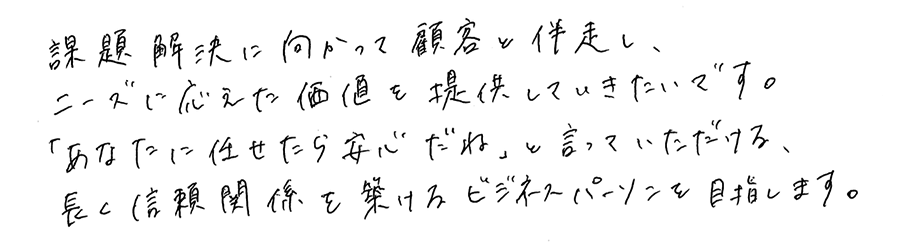 課題解決に向かって顧客と伴走し、
ニーズに応えた価値を提供していきたいです。
「あなたに任せたら安心だね」と言っていただける、
長く信頼関係を築けるビジネスパーソンを目指します。